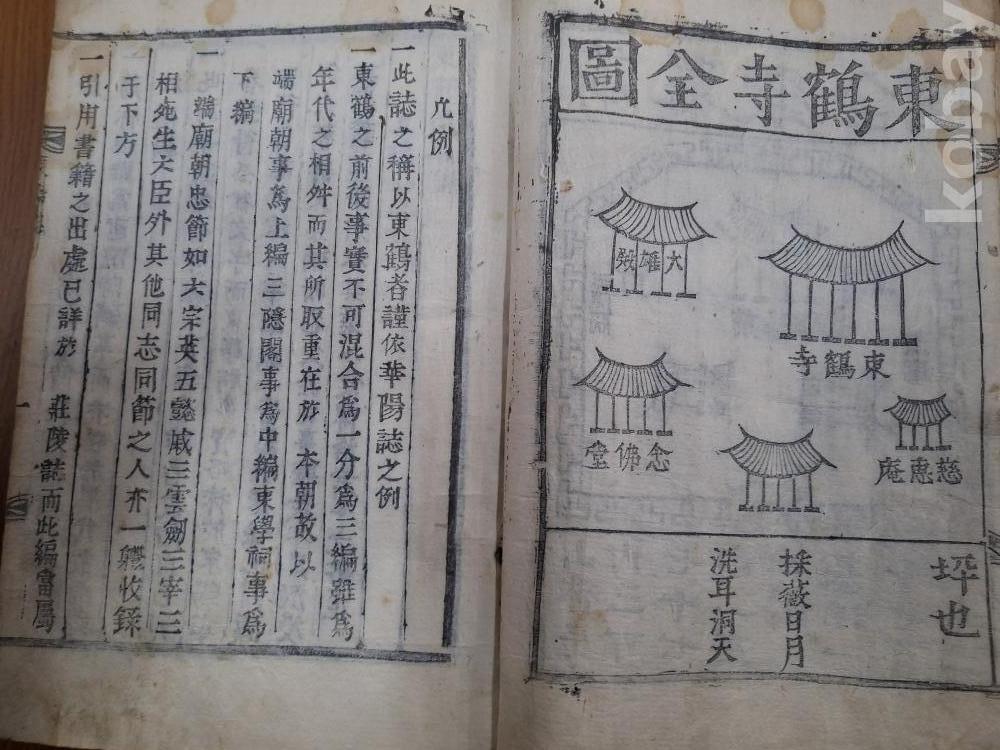 東鶴寺全圖
大雄殿
東鶴寺
念佛堂
慈惠庵
坪也
採薇日月
洗耳洞天
凡例
一此誌之稱以東鶴者謹依華陽誌之例
一東鶴之前後事實不可混合爲一分爲三編雖爲
年代之相舛而其所取重在於 本朝故以
端廟朝事爲上編三隱閣事爲中編東學祠事爲
下編
一 端廟朝忠節如六宗英五懿戚三雲劍三宰三
相死生六臣外其他同志同節之人亦一軆收錄
于下方
一引用書籍之出處已詳於 莊陵誌而此編當屬
一
kobay